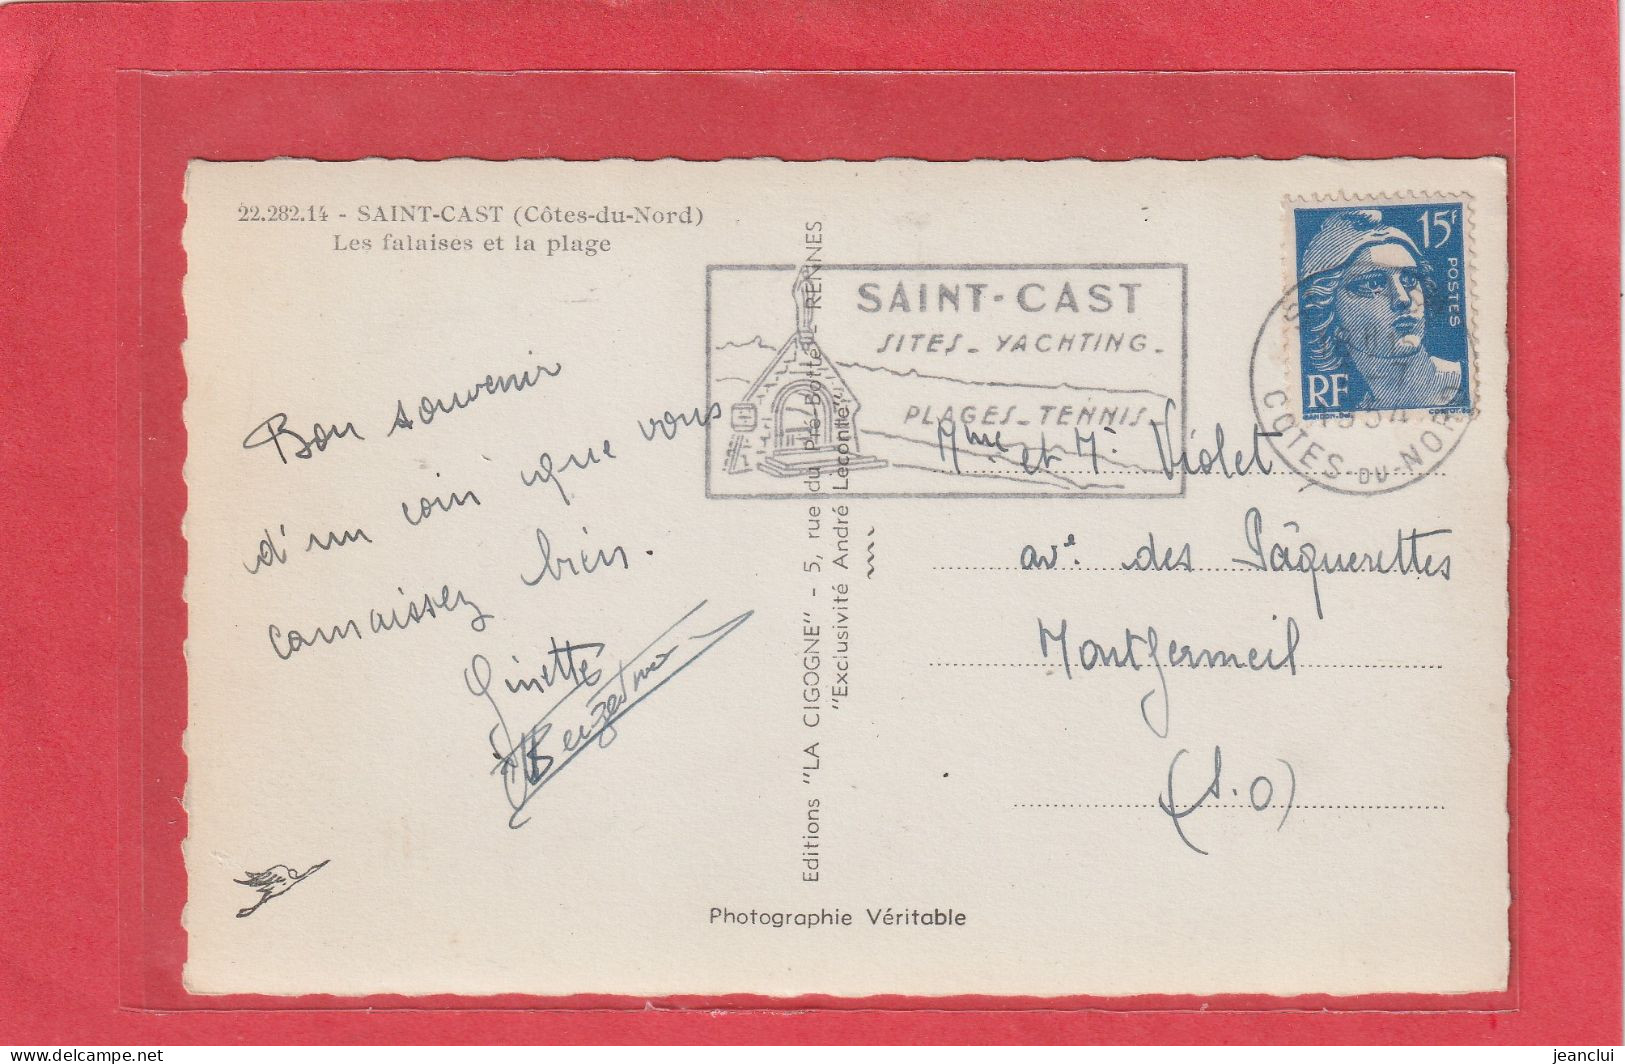 22.282.14 - SAINT-CAST (Côtes-du-Nord)
Les falaises et la plage
SAINT-CAST
SITES - YACHTING -
PLAGES - TENNIS
15F
POSTES
RF
CÔTES-DU-NORD
Bon souvenir
d'un coin que vous
connaissez bien.
Ginette
Mme et Mr Violet
ave. des Pâquerettes
Montfermeil
(S.O)
Editions "LA CIGOGNE" - 5, rue du Pré-Botté - RENNES
"Exclusivité André Lecomte"
Photographie Véritable
www.delcampe.net
jeanclui